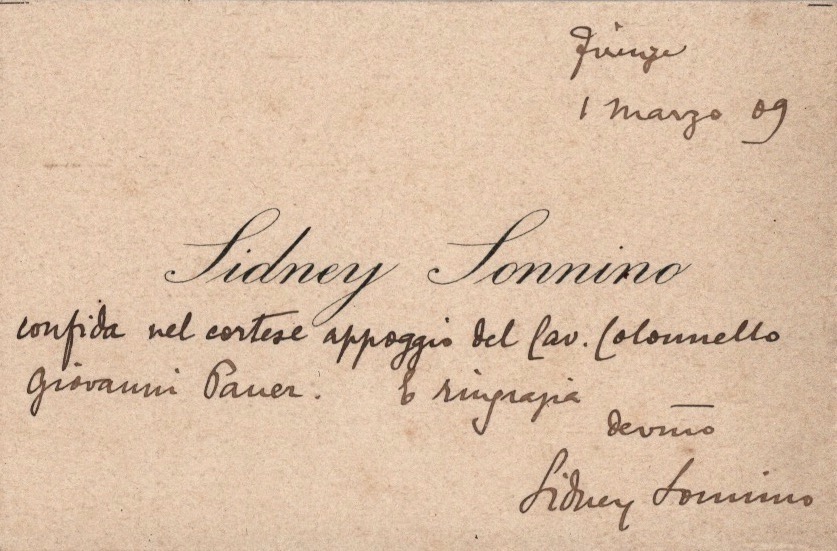 Firenze
1 Marzo 09
Sidney Sonnino
confida nel cortese appoggio del Cav. Colonnello
Giovanni Pauer. E ringrazia
devmo
Sidney Sonnino